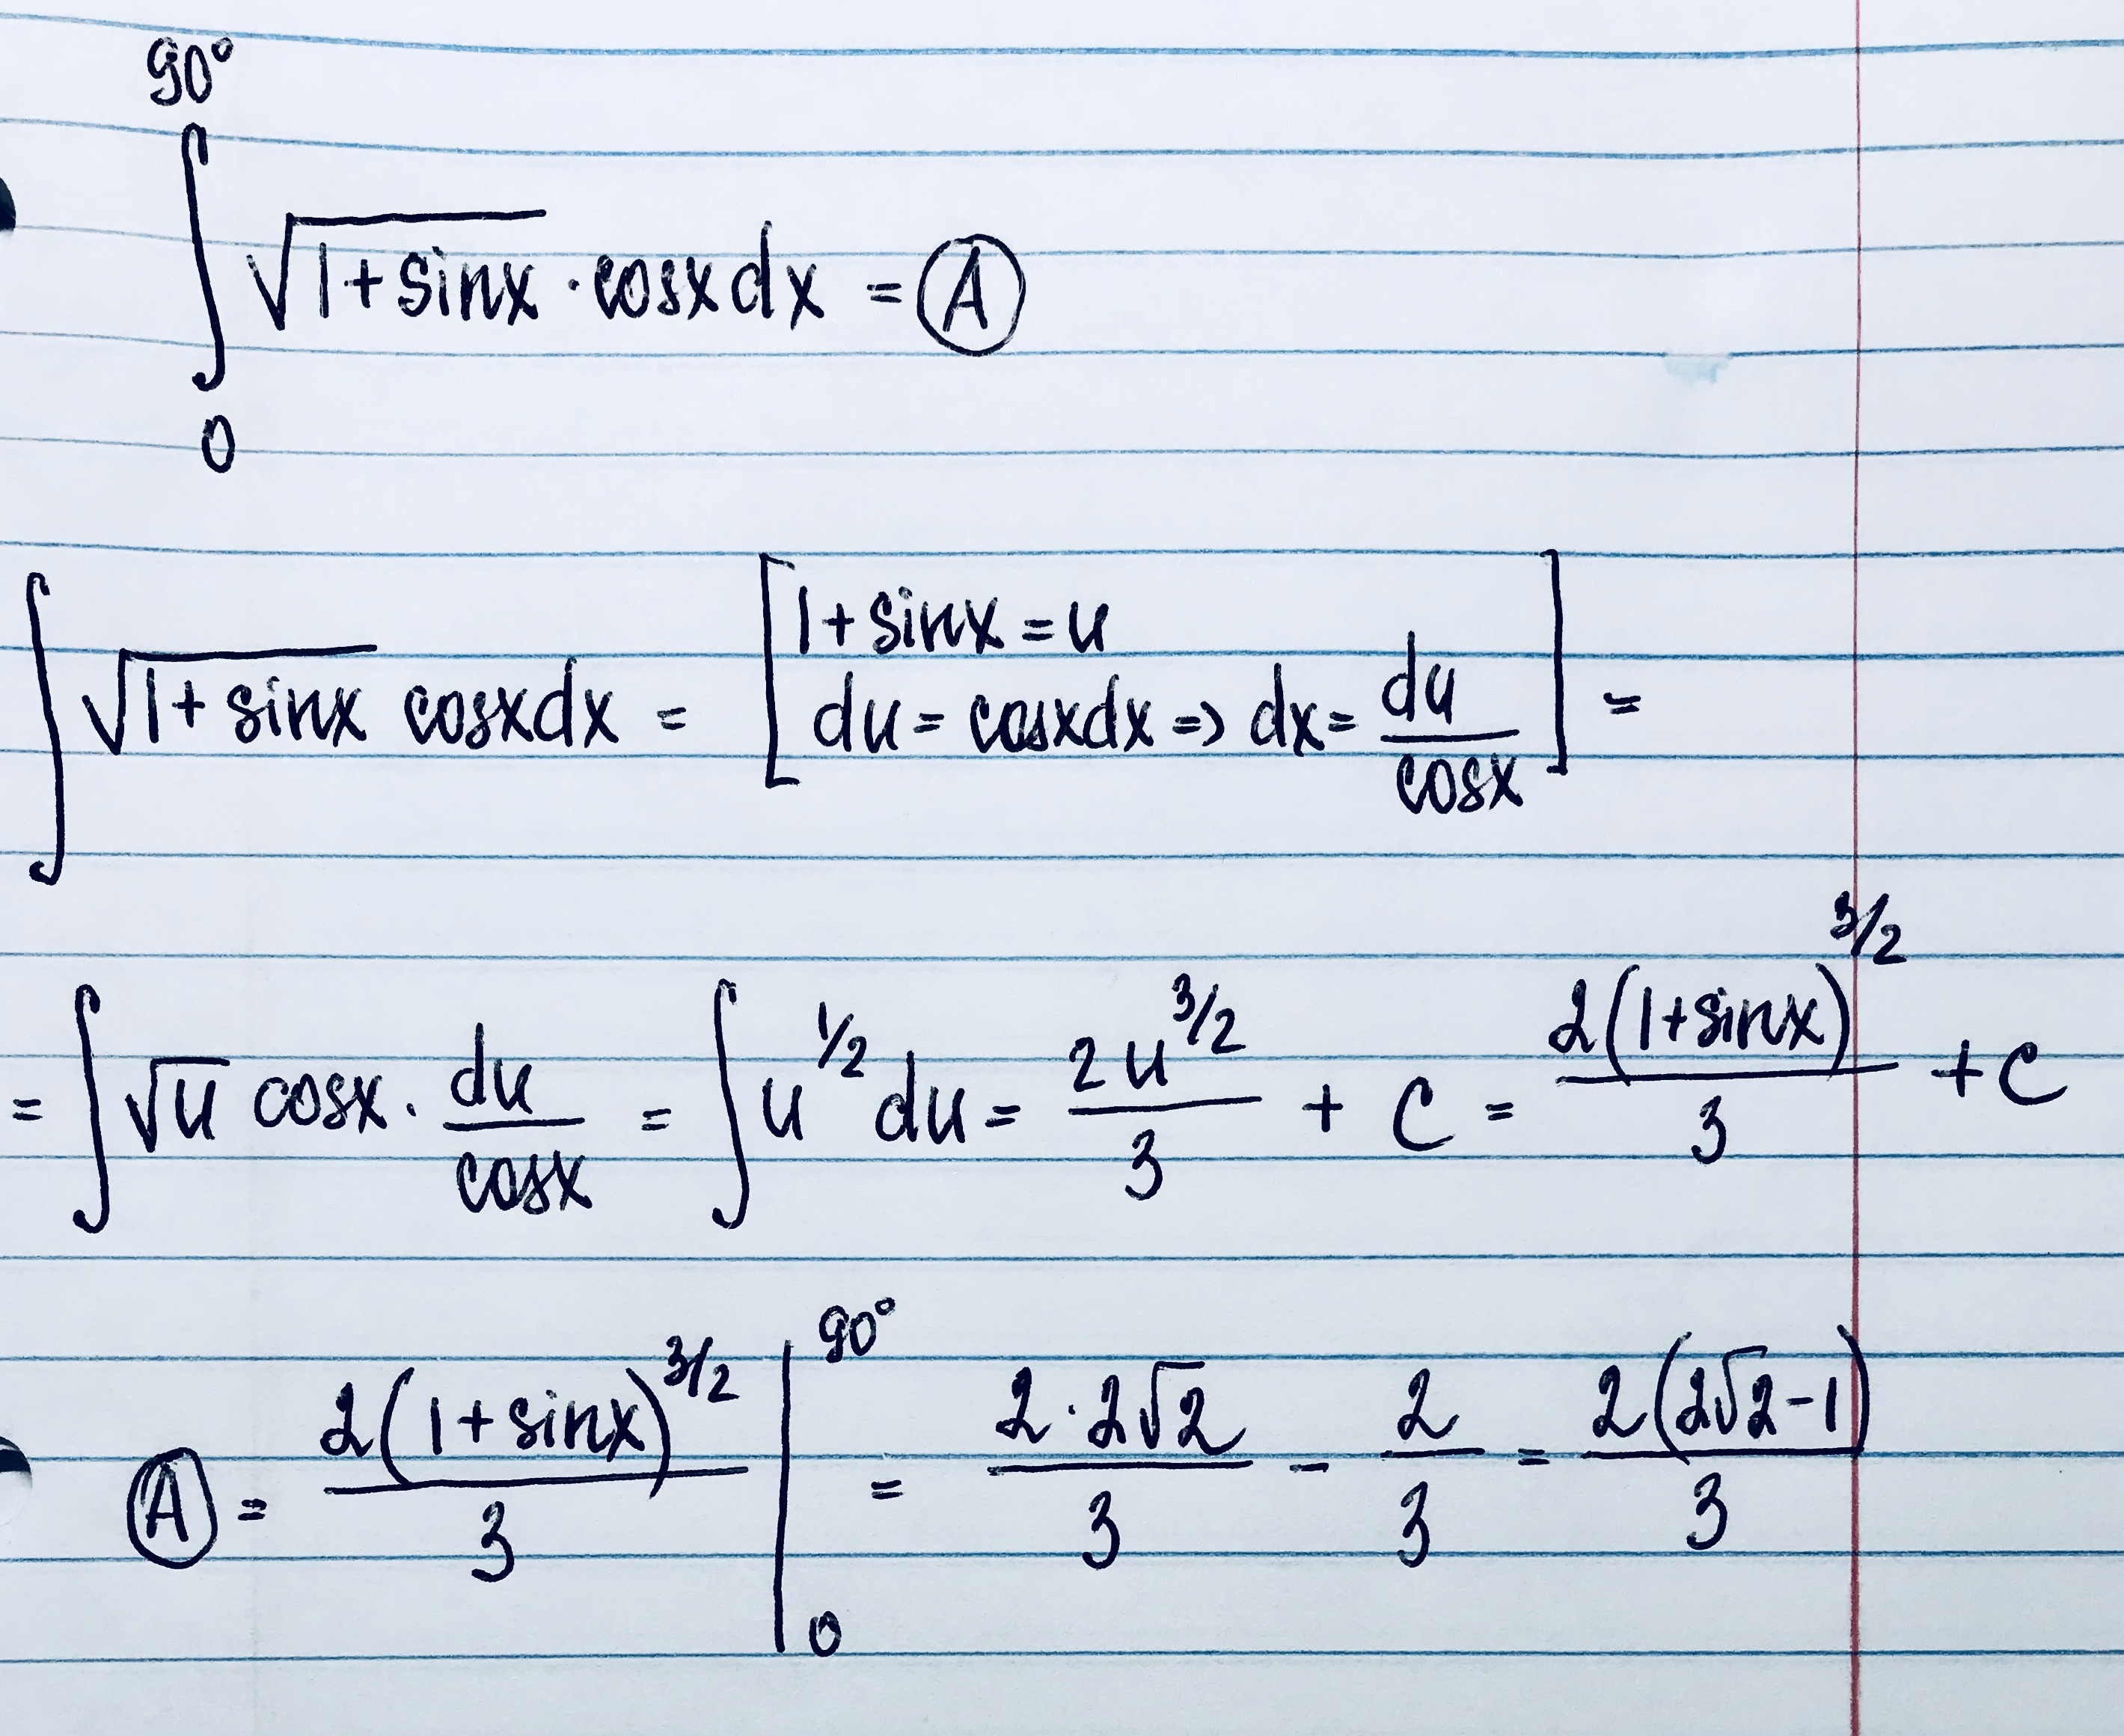 90°
∫ √(1+sinx) · cosxdx = Ⓐ
0
∫ √(1+sinx) cosxdx = [1+sinx = u
du = cosxdx => dx = du/cosx] =
= ∫ √u cosx · du/cosx = ∫ u^(1/2) du = 2u^(3/2)/3 + C = 2(1+sinx)^(3/2)/3 + C
Ⓐ = 2(1+sinx)^(3/2)/3 |₀^90° = 2·2√2/3 - 2/3 = 2(2√2-1)/3